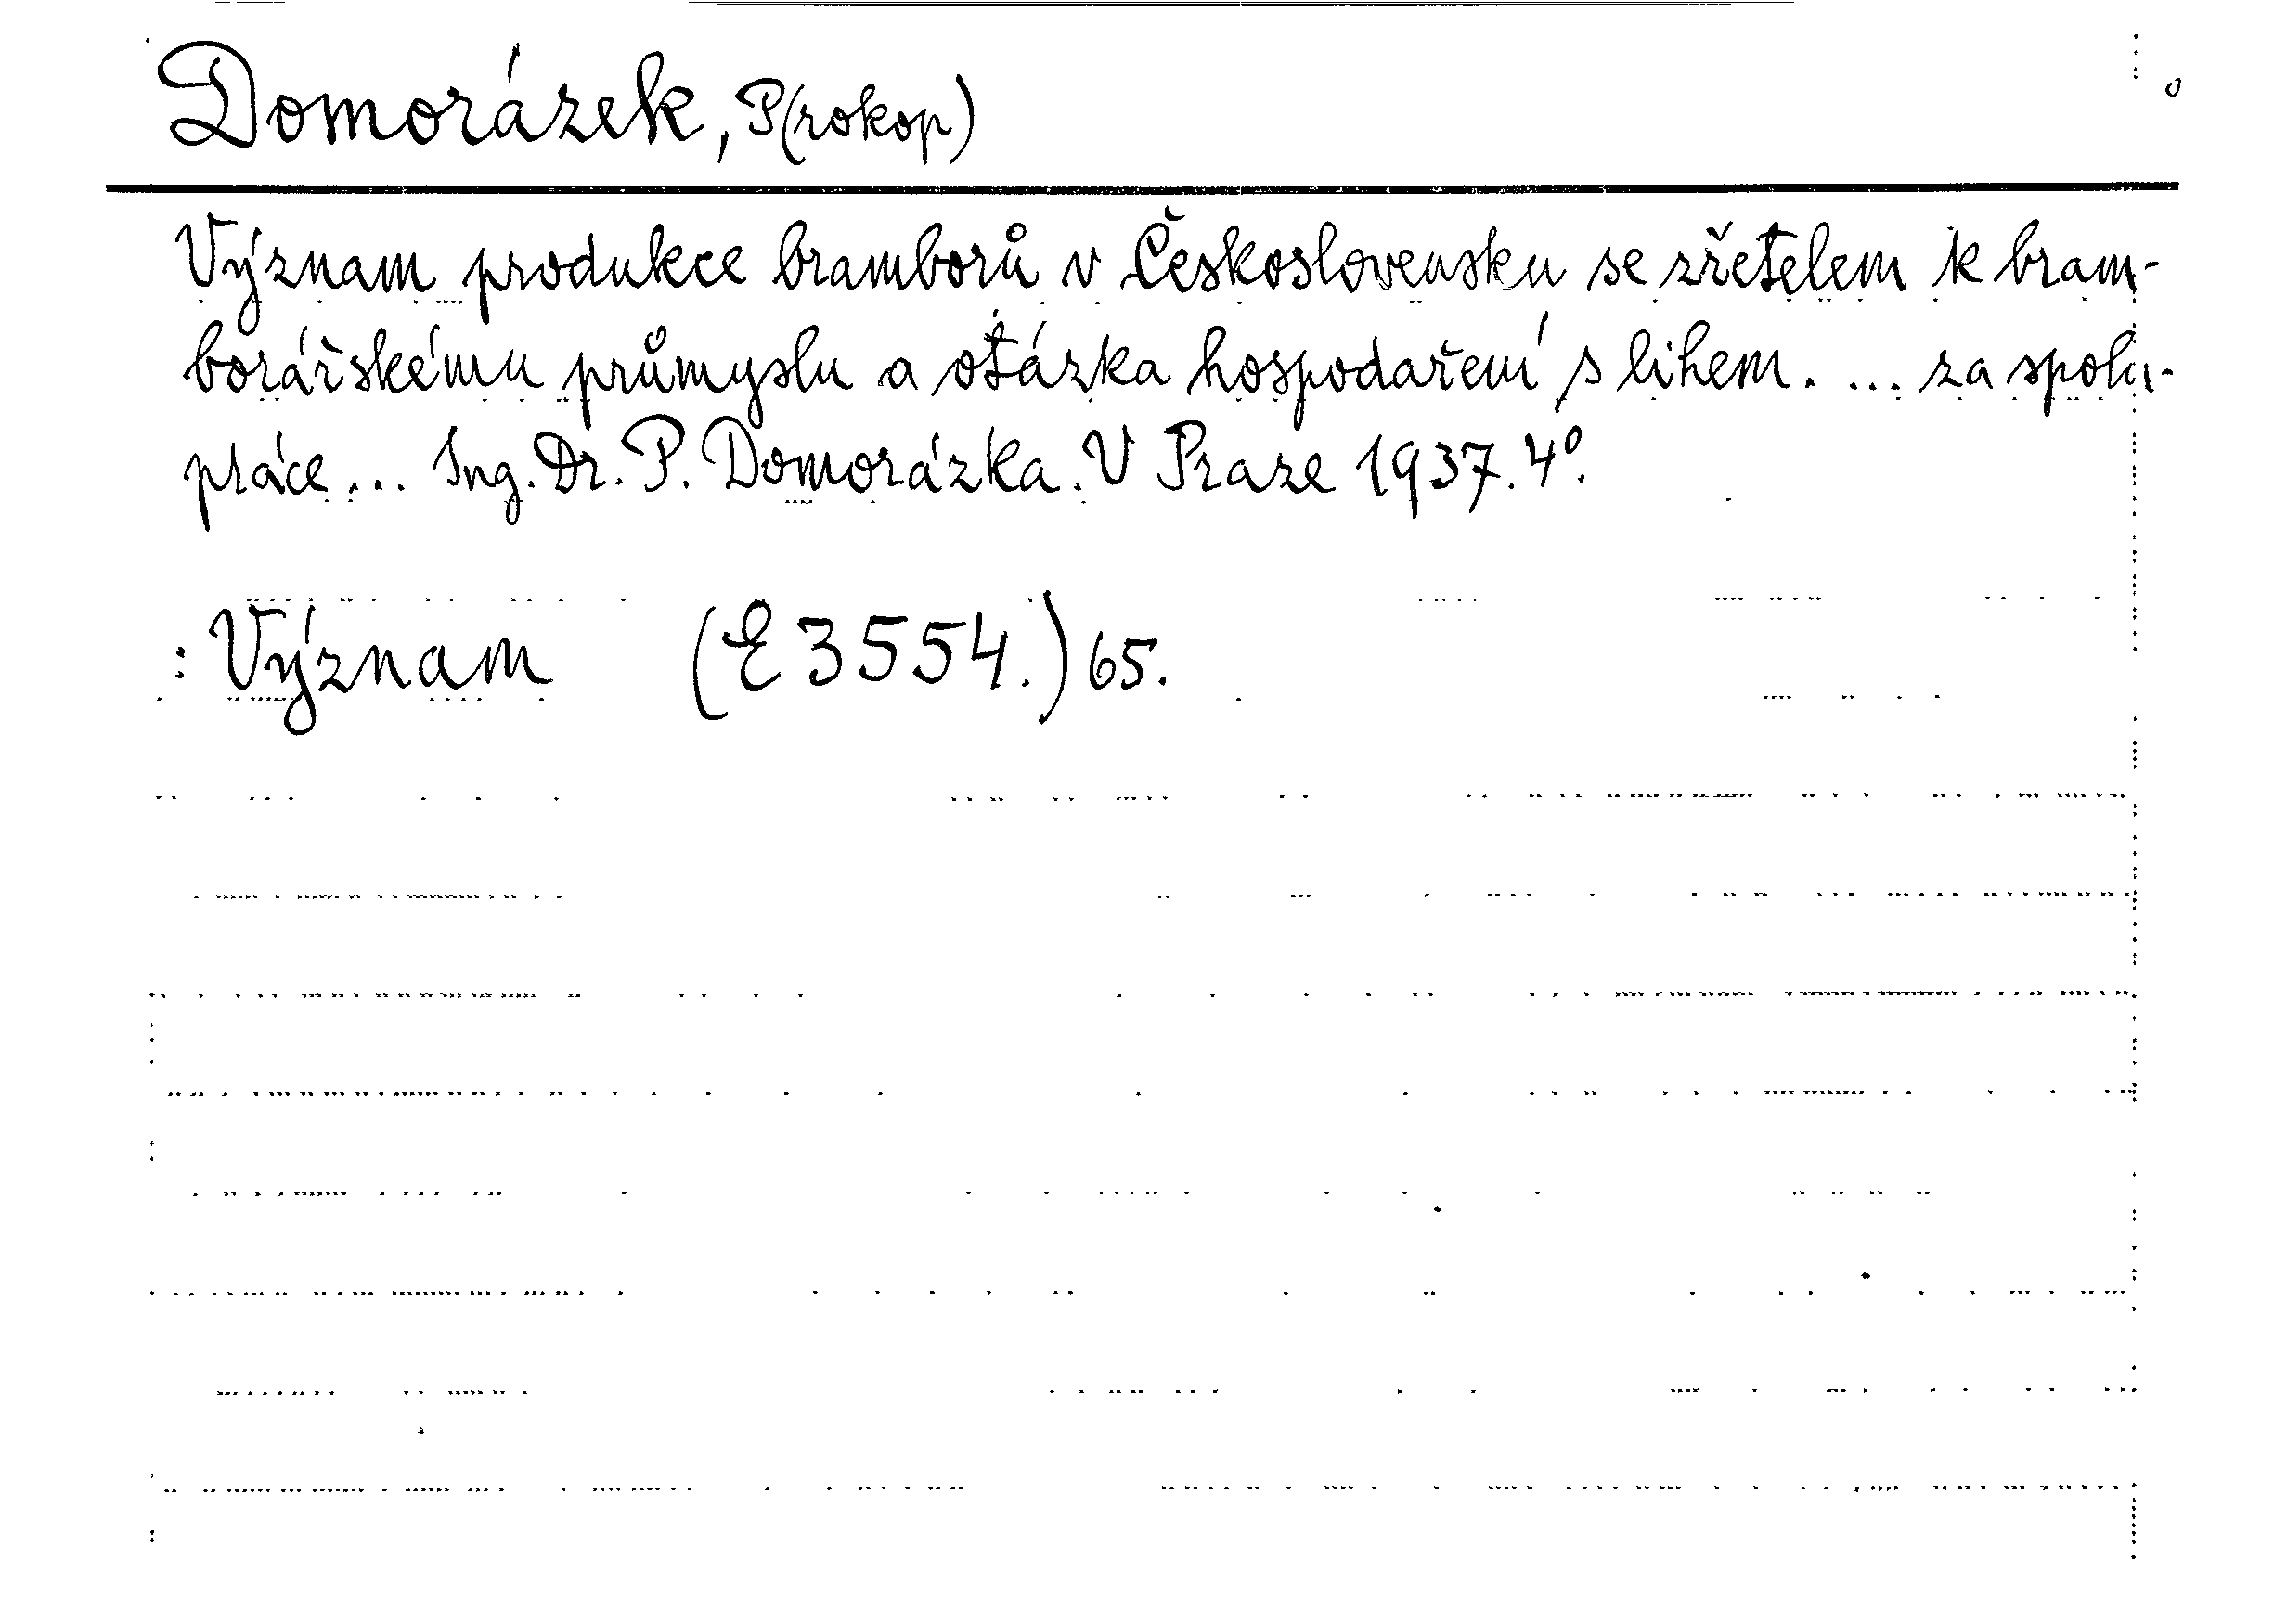 Domorázek, P(rokop)
Význam produkce bramborů v Československu se zřetelem k bram-
borářskému průmyslu a otázka hospodaření s lihem. ... za spolu-
práce ... Ing. Dr. P. Domorázka. V Praze 1937. 4°.
: Význam (E 3554.) 65.